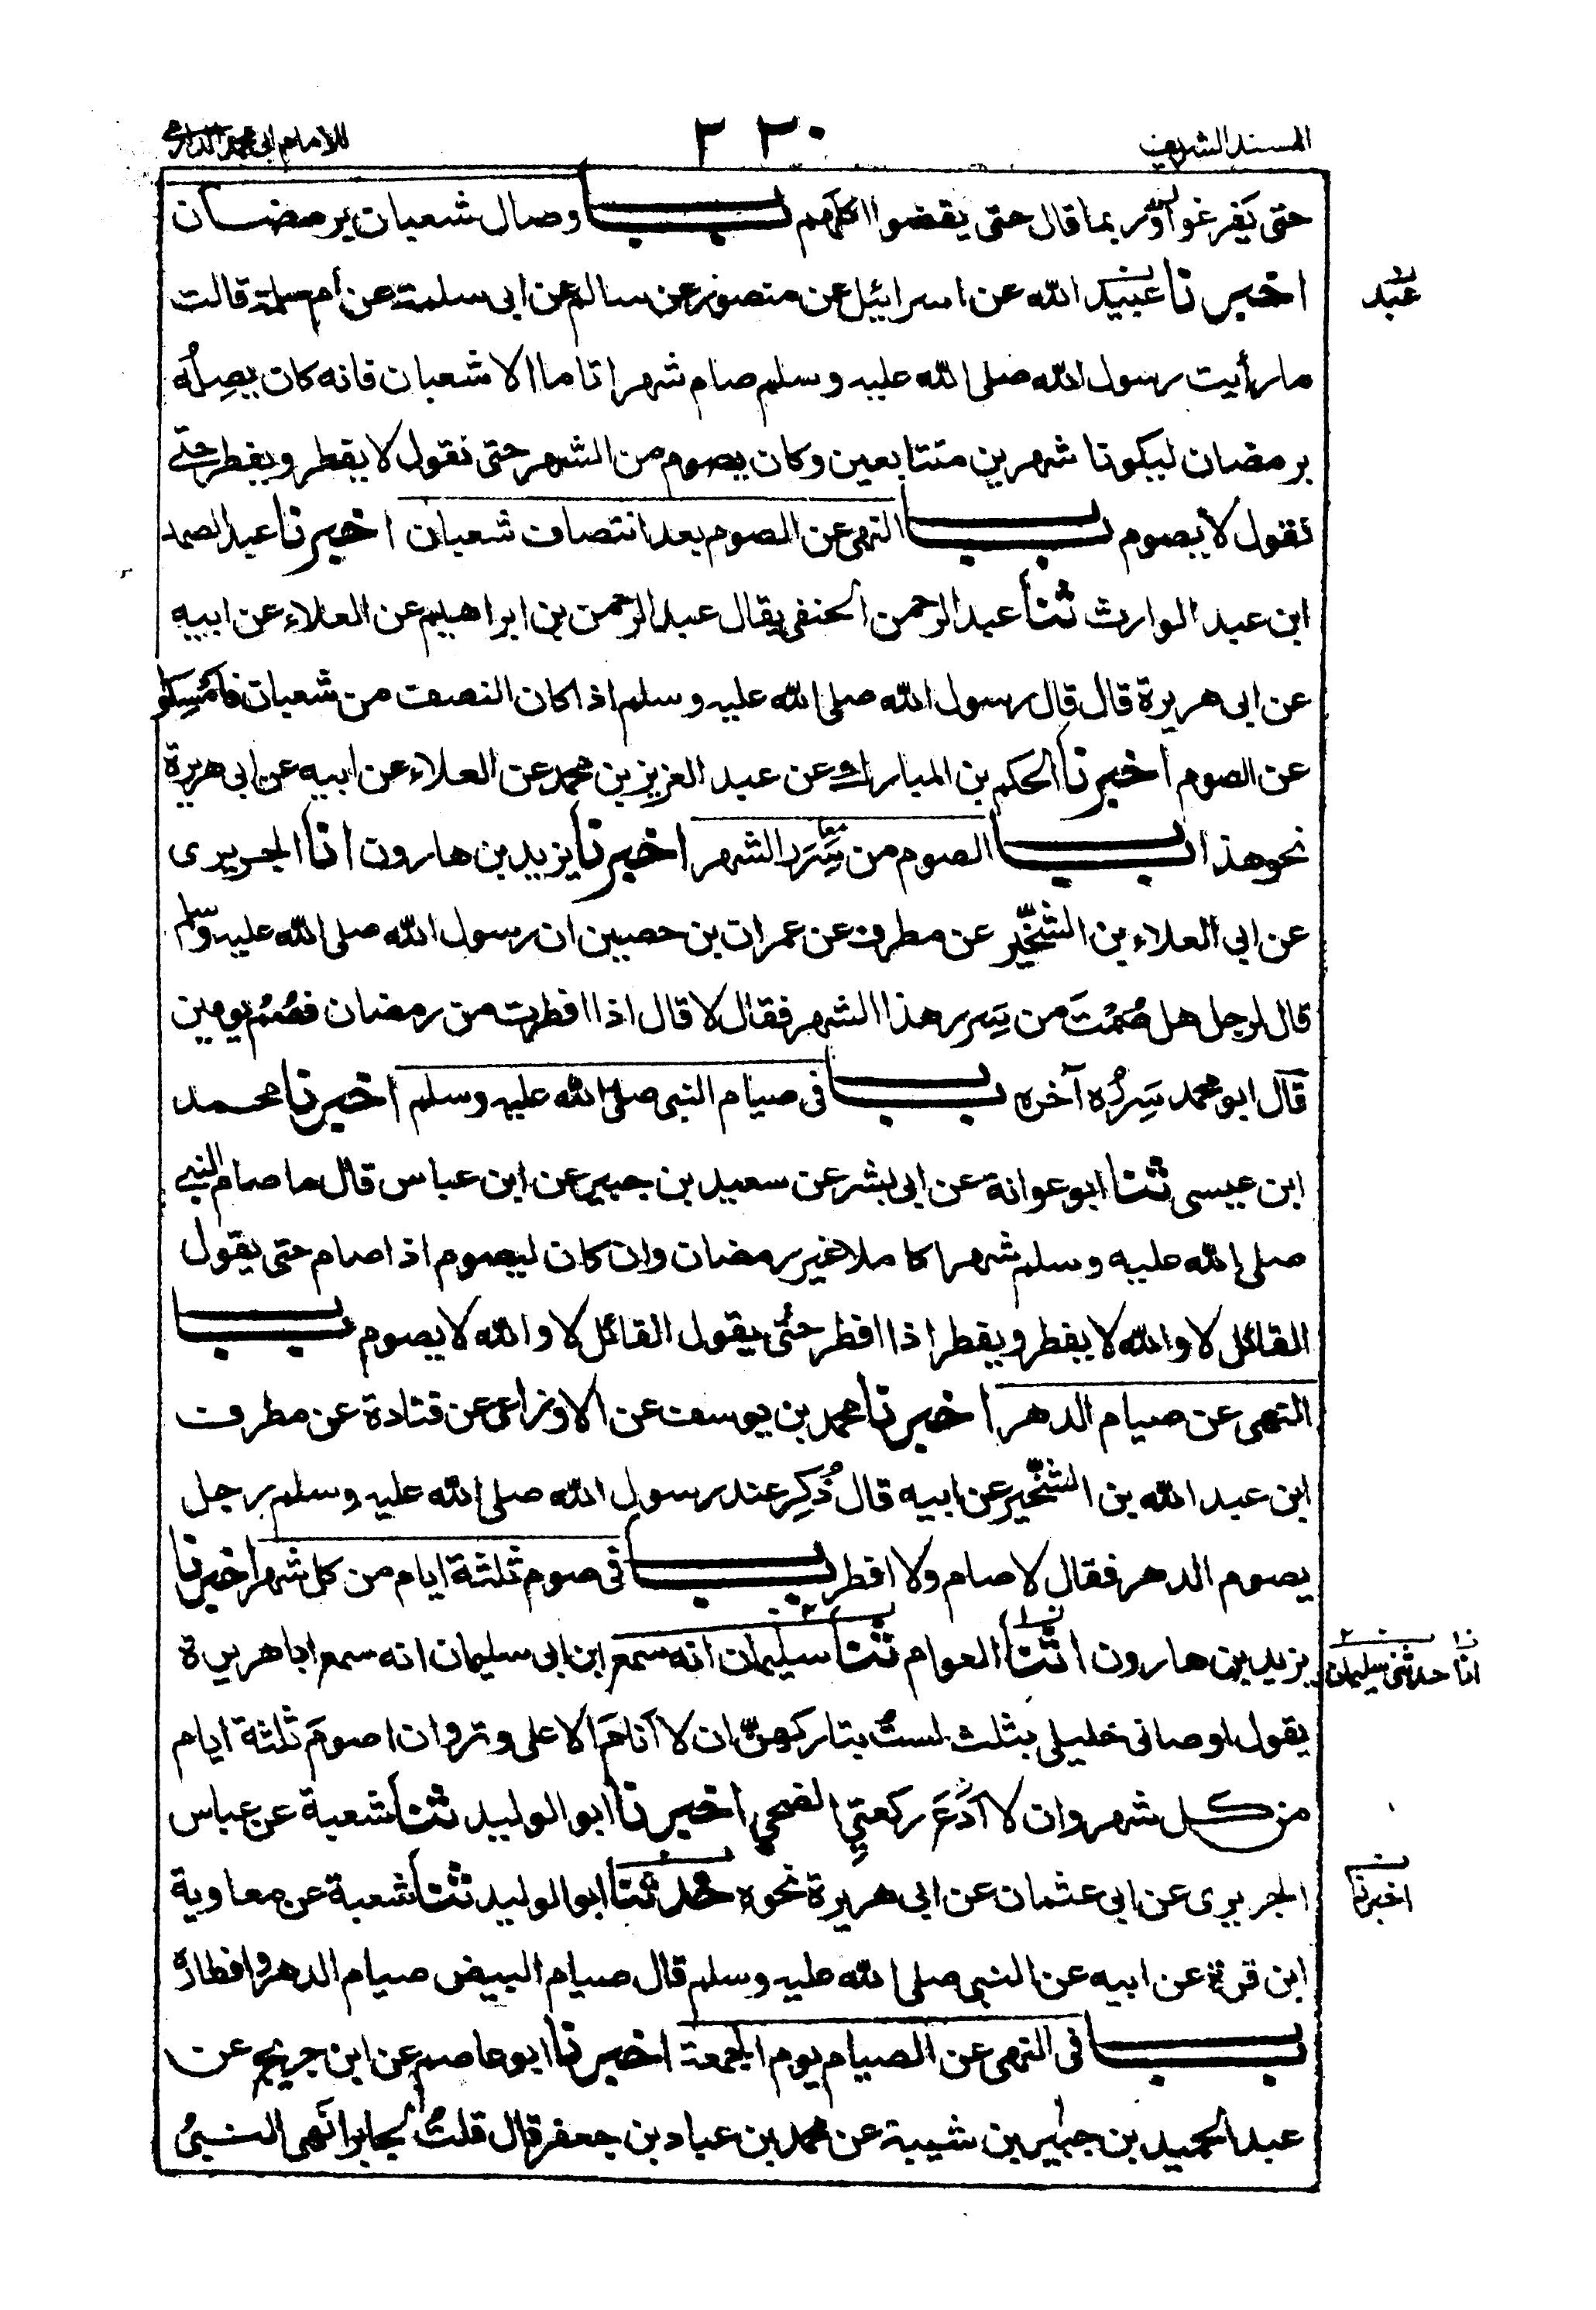 المسند الشريف ٢٣٠ للامام ابى محمد الدارمى
حتى يَفرغوا او ربما قال حتى يقضوا اكلهم بــاب وصال شعبان برمضان
اخبرنا عبيد الله عن اسرائيل عن منصور عن سالم عن ابى سلمة عن ام سلمة قالت
عبد
ما رأيت رسول الله صلى الله عليه وسلم صام شهرا تاما الا شعبان فانه كان يصِلُه
برمضان ليكونا شهرين متتابعين وكان يصوم من الشهر حتى نقول لا يفطر ويفطر حتى
نقول لا يصوم بــاب النهى عن الصوم بعد انتصاف شعبان اخبرنا عبد الصمد
ابن عبد الوارث ثنا عبد الرحمن الحنفى يقال عبد الرحمن بن ابراهيم عن العلاء عن ابيه
عن ابى هريرة قال قال رسول الله صلى الله عليه وسلم اذا كان النصف من شعبان فأمْسِكوا
عن الصوم اخبرنا الحكم بن المبارك عن عبد العزيز بن محمد عن العلاء عن ابيه عن ابى هريرة
نحو هذا بــاب الصوم من سَِرَر الشهر اخبرنا يزيد بن هارون انا الجريرى
عن ابى العلاء بن الشخّير عن مطرف عن عمران بن حصين ان رسول الله صلى الله عليه وسلم
قال لرجل هل صُمْتَ من سِرر هذا الشهر فقال لا قال اذا افطرت من رمضان فصُمْ يومين
قال ابو محمد سَِرَرُه آخره بــاب فى صيام النبى صلى الله عليه وسلم اخبرنا محمد
ابن عيسى ثنا ابو عوانة عن ابى بشر عن سعيد بن جبير عن ابن عباس قال ما صام النبى
صلى الله عليه وسلم شهرا كاملا غير رمضان وان كان ليصوم اذا صام حتى يقول
القائل لا والله لا يفطر ويفطر اذا افطر حتى يقول القائل لا والله لا يصوم بــاب
النهى عن صيام الدهر اخبرنا محمد بن يوسف عن الاوزاعى عن قتادة عن مطرف
ابن عبد الله بن الشخّير عن ابيه قال ذُكِر عند رسول الله صلى الله عليه وسلم رجل
يصوم الدهر فقال لا صام ولا افطر بــاب فى صوم ثلثة ايام من كل شهر اخبرنا
يزيد بن هارون اثنا العوام ثنا سليمان انه سمع ابن ابى سليمان انه سمع ابا هريرة
انا حدثنى سليمان
يقول اوصانى خليلى بثلث لستُ بتاركهنّ ان لا أنامَ الا على وتر وان اصومَ ثلثة ايام
من كل شهر وان لا أدَعَ ركعتىِ الضحى اخبرنا ابو الوليد ثنا شعبة عن عباس
الجريرى عن ابى عثمان عن ابى هريرة نحوه حدثنا ابو الوليد ثنا شعبة عن معاوية
اخبرنا
ابن قرة عن ابيه عن النبى صلى الله عليه وسلم قال صيام البيض صيام الدهر وافطاره
بــاب فى النهى عن الصيام يوم الجمعة اخبرنا ابو عاصم عن ابن جريج عن
عبد الحميد بن جبير بن شيبة عن محمد بن عباد بن جعفر قال قلتُ لجابر أنَهى النبىُ